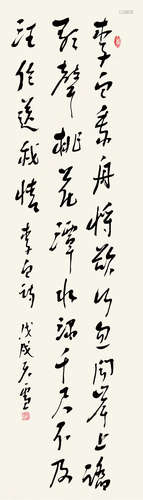 李白乘舟將欲行忽聞岸上踏
歌聲桃花潭水深千尺不及
汪倫送我情 李白詩 戊戌